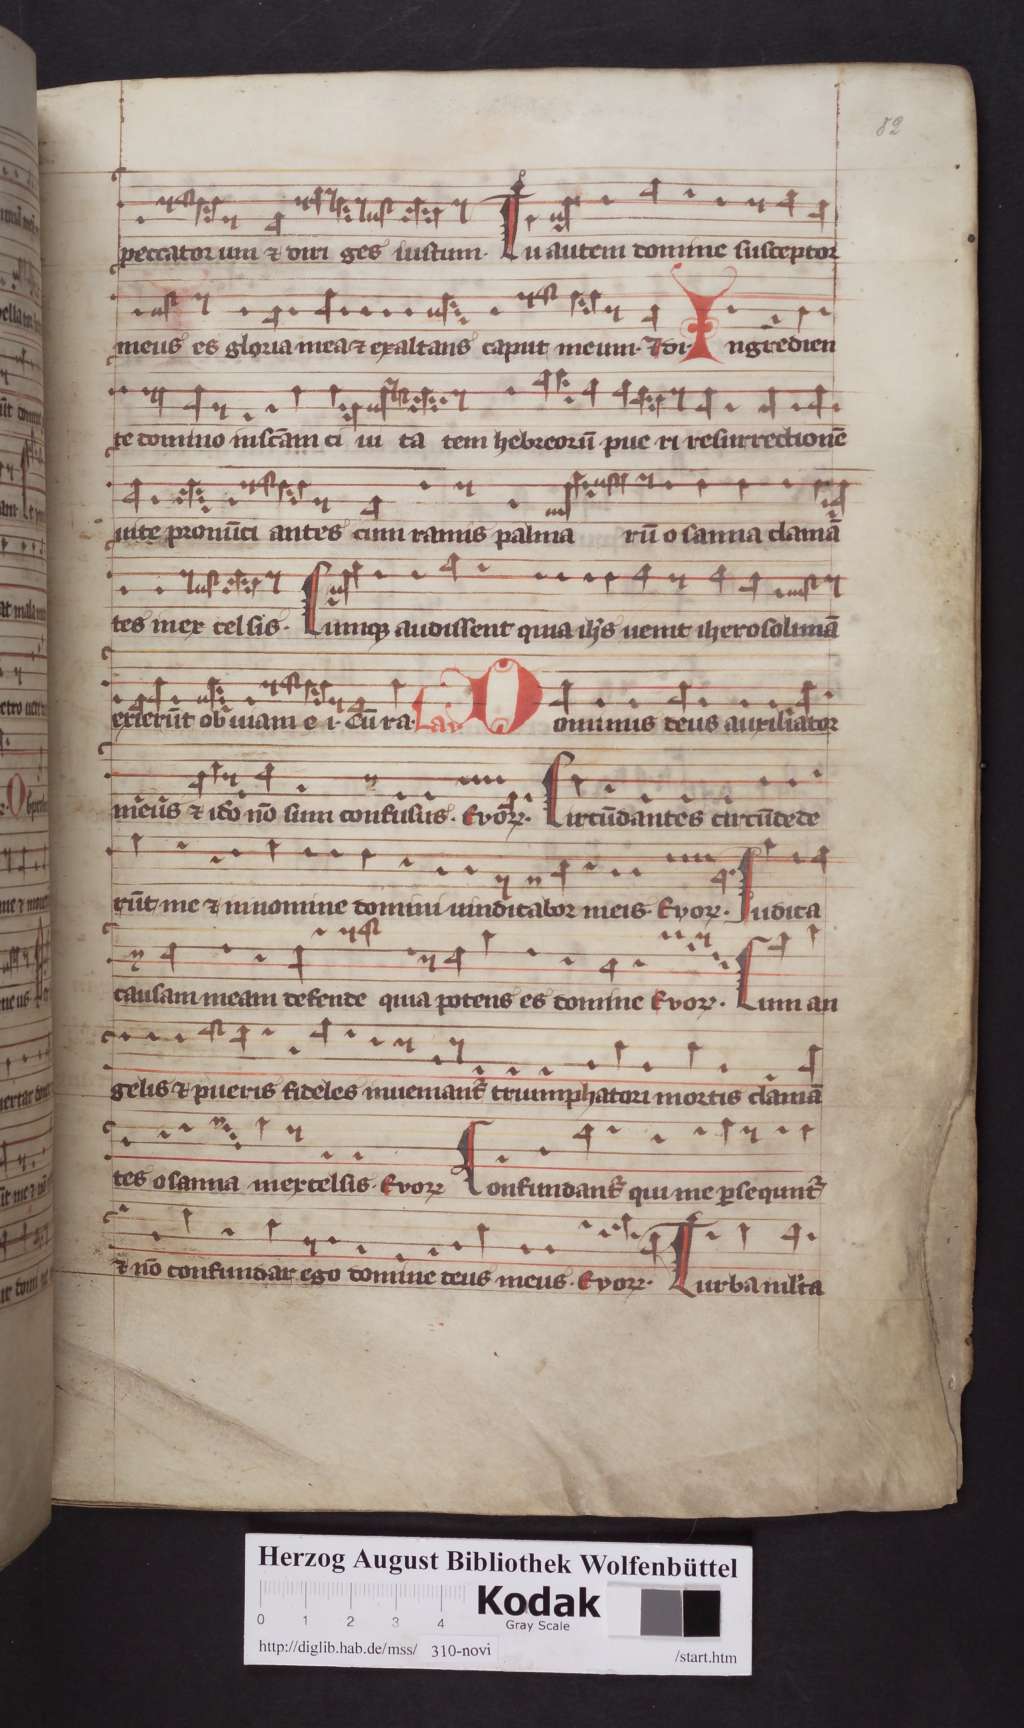 82
peccatorum & diri ges iustum. Tu autem domine susceptor
meus es gloria mea & exaltans caput meum. & di. Ingredien
te domino in scām ci ui ta tem hebreorū pue ri resurrectionē
uite pronūci antes cum ramis palma rū osanna clamā
tes in ex celsis. Cumq; audissent quia ihs uenit iherosolimā
exierūt ob uiam e i. Cū ra. Lau Dominus deus auxiliator
meus & ido nō sum confusus. Evorꝝ. Circūdantes circūdede
rūt me & in nomine domini uindicabor in eis. Evorꝝ. Iudica
causam meam defende quia potens es domine Evorꝝ. Cum an
gelis & pueris fideles inueniant᷑ triumphatori mortis clamā
tes osanna in excelsis. Evorꝝ Confundant᷑ qui me ꝑsequnt᷑
& nō confundar ego domine deus meus. Evorꝝ. Turba mlta
Herzog August Bibliothek Wolfenbüttel
0 1 2 3 4
Kodak
Gray Scale
http://diglib.hab.de/mss/ 310-novi /start.htm